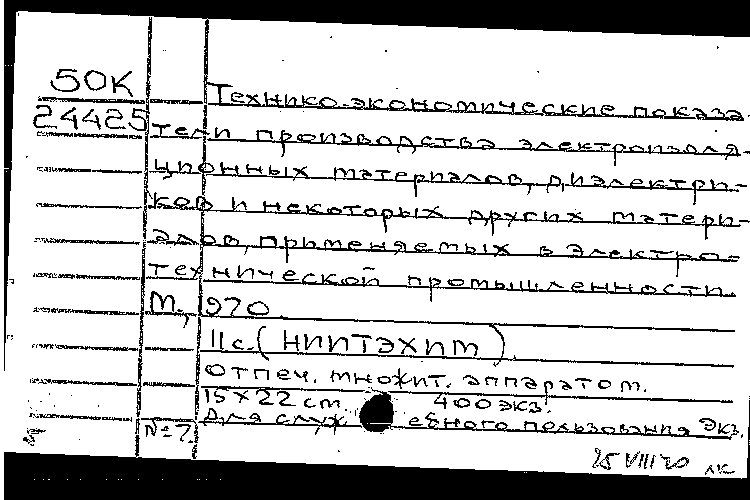 50К
24425
Технико-экономические показа-
тели производства электроизоля-
ционных материалов, диэлектри-
ков и некоторых других матери-
алов, применяемых в электро-
технической промышленности.
М., 970
11с. (НИИТЭХИМ).
Отпеч. множит. аппаратом.
15×22 cm 400 экз.
Для служебного пользования Экз.
№ 7.
25 VIII 70 лк